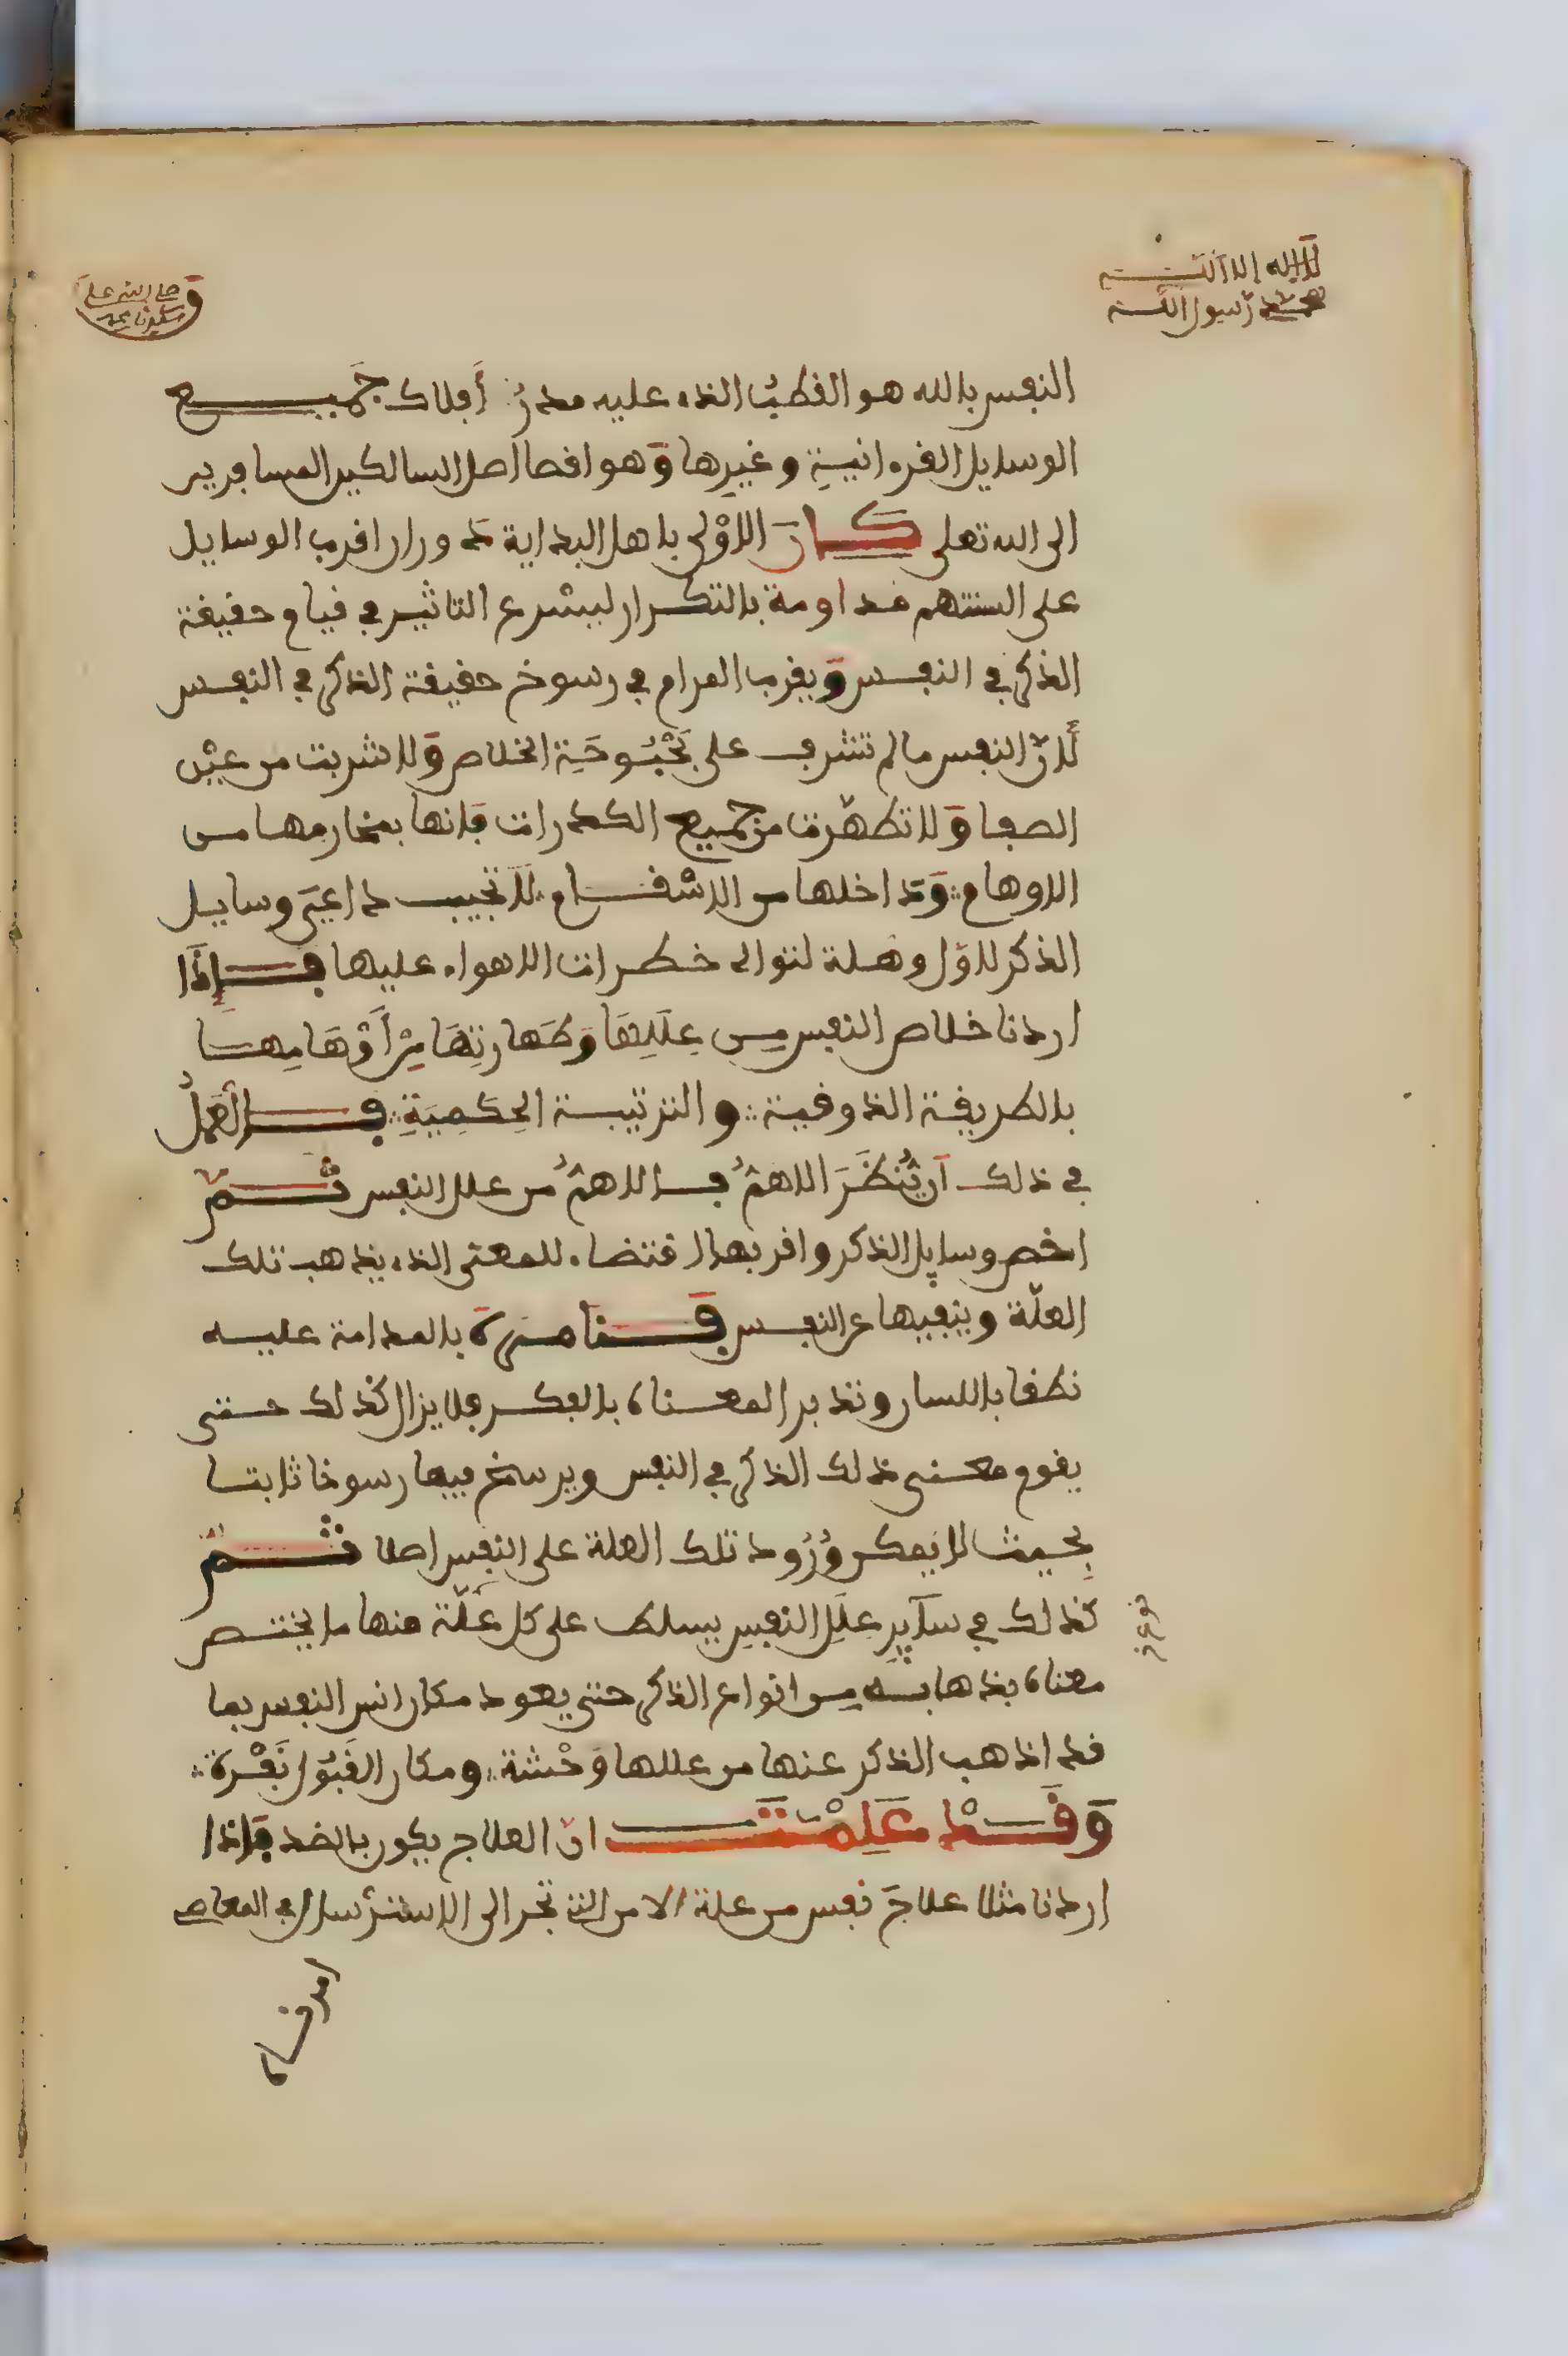 لا إله إلا الله
محمد رسول الله
صلى الله على
سيدنا محمد
النفس بالله هو القطبُ الذى عليه مدرُ أَفلاك جَميع
الوسايل القرءانيةِ وغيرِها وَهو اقصا امل السالكين المسافرين
الى الله تعلى كــان اللاوْلى باهل البداية دوران اقرب الوسايل
على السنتهم مداومة بالتكرار ليسْرع التاثير في قيام حقيقة
الذكر في النفس وَيقرب المرام في رسوخ حقيقة الذكر في النفس
لأنّ النفس مالم تشرف على بُحْبُوحَةِ الخلاص وَلا شربت من عيْن
الصفا وَلا تطهّرت من جميع الكدرات فإنها بمخارمها من
الاوهام وَتداخلها من الاسْقــام لا تجيب داعِيَ وسايل
الذكر لاوّل وهلة لتوالى خطرات الاهواء عليها فــإذَا
اردنا خلاص النفس مِن عِلَلِهَا وَطَهارتِهَا مِنْ أَوْهَامِهــا
بالطريقة الذوقية والترتيبــة الحِكمِيَةِ فــالْعَمَلُ
في ذلك أن تُنظَرَ الاهمُّ فــالاهمُّ من علل النفس ثــمّ
اخص وسايل الذكر واقربها اقتضاء للمعنى الذى يذهب تلك
العلّة وينفيها عن النفس فَــنامــرهُ بالمدامة عليــه
نطقا باللسان وتدبر المعــناه بالفكــر فلا يزال كذلك حــتى
يقوم معــنى ذلك الذكر في النفس ويرسخ فيها رسوخا ثابتــا
بِحيث لا يمكن وُرُود تلك العلة على النفس اصلا ثــم
كذلك في سآيِرِ عِلَلِ النفسِ يسلط على كل عِلّة منها ما يختــص
معناه بذهابــه مِن انواع الذكر حتى يعود مكان انس النفس بما
قد اذهب الذكر عنها من عللها وَحْشة ومكان القَبُول نَفْرَة
وَقَــدْ عَلِمْتَــ انّ العلاج يكون بالضد فإذا
اردنا مثلا علاجَ نفس من علة الامن التى تجر الى الاسترْسال في المعاصى
امرناه